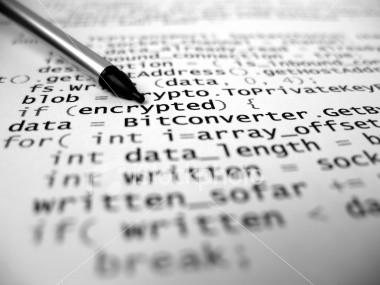 already
connection = is_inbound_con
t().getAddress().getHostAdd
fs.Wr (data, 0, 4);
blob = crypto.ToPrivateKey
if (encrypted) {
data = BitConverter.GetBy
for( int i=array_offset
int data_length = b
int written = sock
written_sofar +=
if( written < da
break;